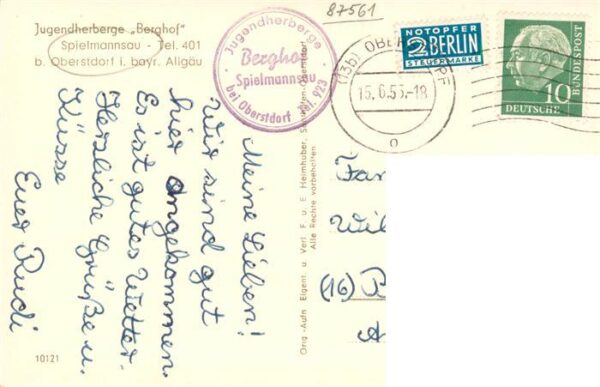 Jugendherberge „Berghof"
Spielmannsau - Tel. 401
b. Oberstdorf i. bayr. Allgäu
87561
Jugendherberge
Berghof
Spielmannsau
bei Oberstdorf Tel. 923
(13b) OBERSTDORF
15.6.55.-18
NOTOPFER
2 BERLIN
STEUERMARKE
DEUTSCHE
BUNDESPOST
10
Meine Lieben!
Wir sind gut
hier angekommen.
Es ist gutes Wetter.
Herzliche Grüße u.
Küsse
Euer Rudi
10121
Orig.-Aufn. Eigent. u. Verl. F. u. E. Heimhuber, Sonthofen-Oberstdorf
Alle Rechte vorbehalten
Fam
Wil
(16) B